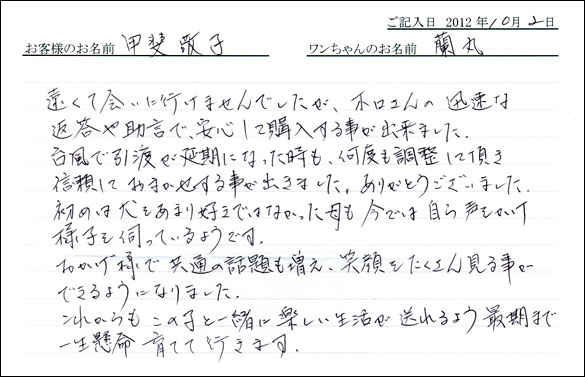 ご記入日 2012年10月2日
お客様のお名前 甲斐 敬子 ワンちゃんのお名前 蘭丸
遠くて会いに行けませんでしたが、ホロさんの迅速な
返答や助言で、安心して購入する事が出来ました.
台風で引渡が延期になった時も、何度も調整して頂き
信頼しておまかせする事が出きました。ありがとうございました.
初めは犬をあまり好きではなかった母も今では自ら声をかけ
様子を伺っているようです.
おかげ様で共通の話題も増え、笑顔をたくさん見る事が
できるようになりました.
これからもこの子と一緒に楽しい生活が送れるよう最期まで
一生懸命育てて行きます.